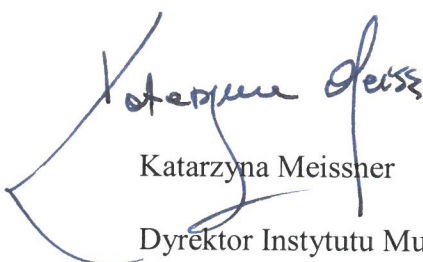 Katarzyna Meiss
Katarzyna Meissner
Dyrektor Instytutu Mu